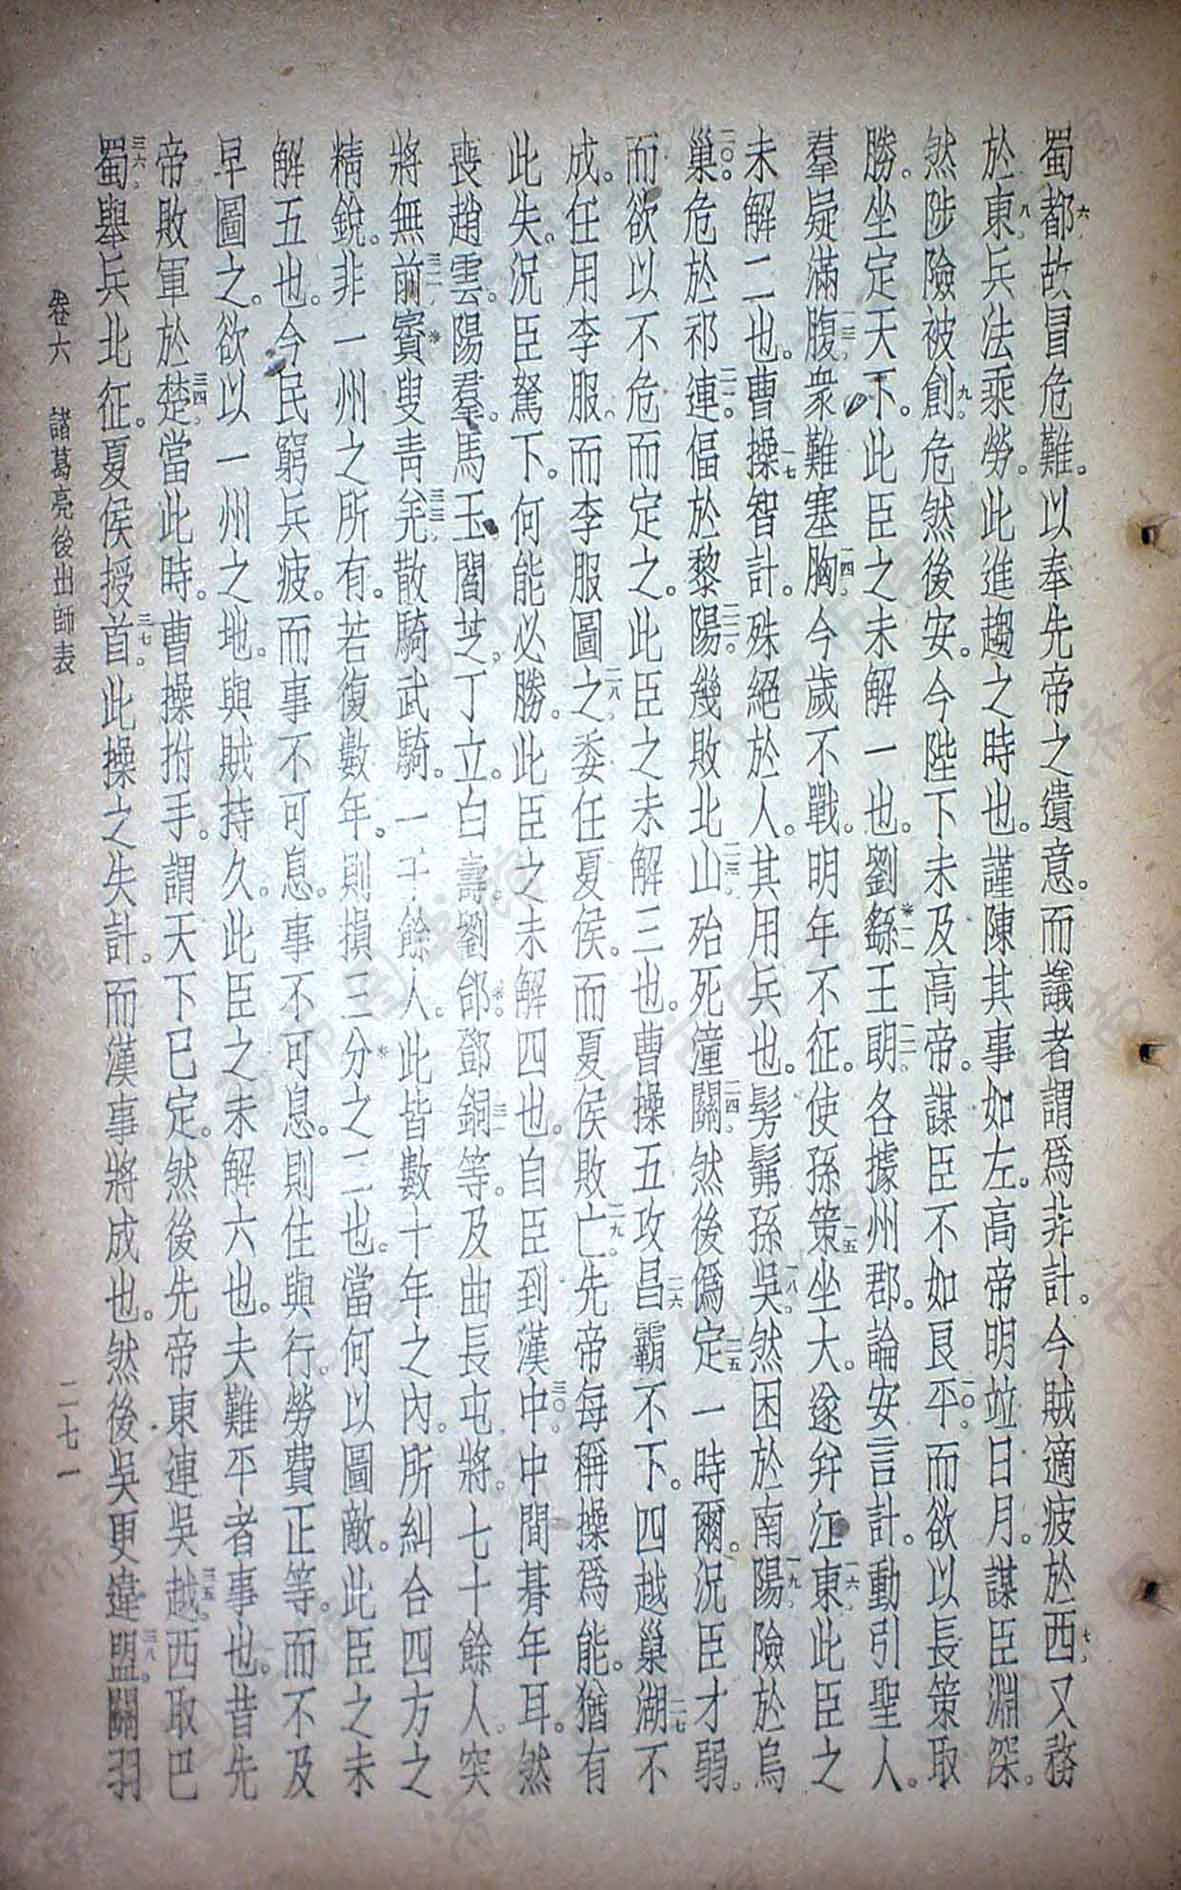 蜀都六故冒危難。以奉先帝之遺意。而議者謂爲非計。今賊適疲於西七、又務
於東八、兵法乘勞。此進趨之時也。謹陳其事如左。高帝明竝日月。謀臣淵深。
然陟險被創九。危然後安。今陛下未及高帝。謀臣不如良平一〇。而欲以長策取
勝。坐定天下。此臣之未解一也。劉繇*一一王朗一二。各據州郡。論安言計。動引聖人。
羣疑滿腹一三、衆難塞胸一四。今歲不戰。明年不征。使孫策一五坐大。遂幷江東一六、此臣之
未解二也。曹操一七智計。殊絕於人。其用兵也。髣髴孫吳一八。然困於南陽一九、險於烏
巢二〇。危於祁連二一。偪於黎陽二二。幾敗北山二三、殆死潼關二四。然後僞定二五一時爾。況臣才弱。
而欲以不危而定之。此臣之未解三也。曹操五攻昌霸二六不下。四越巢湖二七不
成。任用李服。而李服圖之二八、委任夏侯。而夏侯敗亡二九。先帝每稱操爲能。猶有
此失。況臣駑下。何能必勝。此臣之未解四也。自臣到漢中三〇。中間朞年耳。然
喪趙雲。陽羣。馬玉。閻芝。丁立。白壽。劉郃*。鄧銅三一等。及曲長屯將。七十餘人。突
將無前三二。賨*叟靑羌三三、散騎武騎。一千餘人。此皆數十年之內。所糾合四方之
精銳。非一州之所有。若復數年。則損三分*之二也。當何以圖敵。此臣之未
解五也。今民窮兵疲。而事不可息。事不可息。則住與行。勞費正等。而不及
早圖之。欲以一州之地。與賊持久。此臣之未解六也。夫難平者事也。昔先
帝敗軍於楚三四、當此時。曹操拊手。謂天下已定。然後先帝東連吳越三五。西取巴
蜀三六。舉兵北征。夏侯授首三七。此操之失計。而漢事將成也。然後吳更違盟三八。關羽
卷六 諸葛亮後出師表 二七一